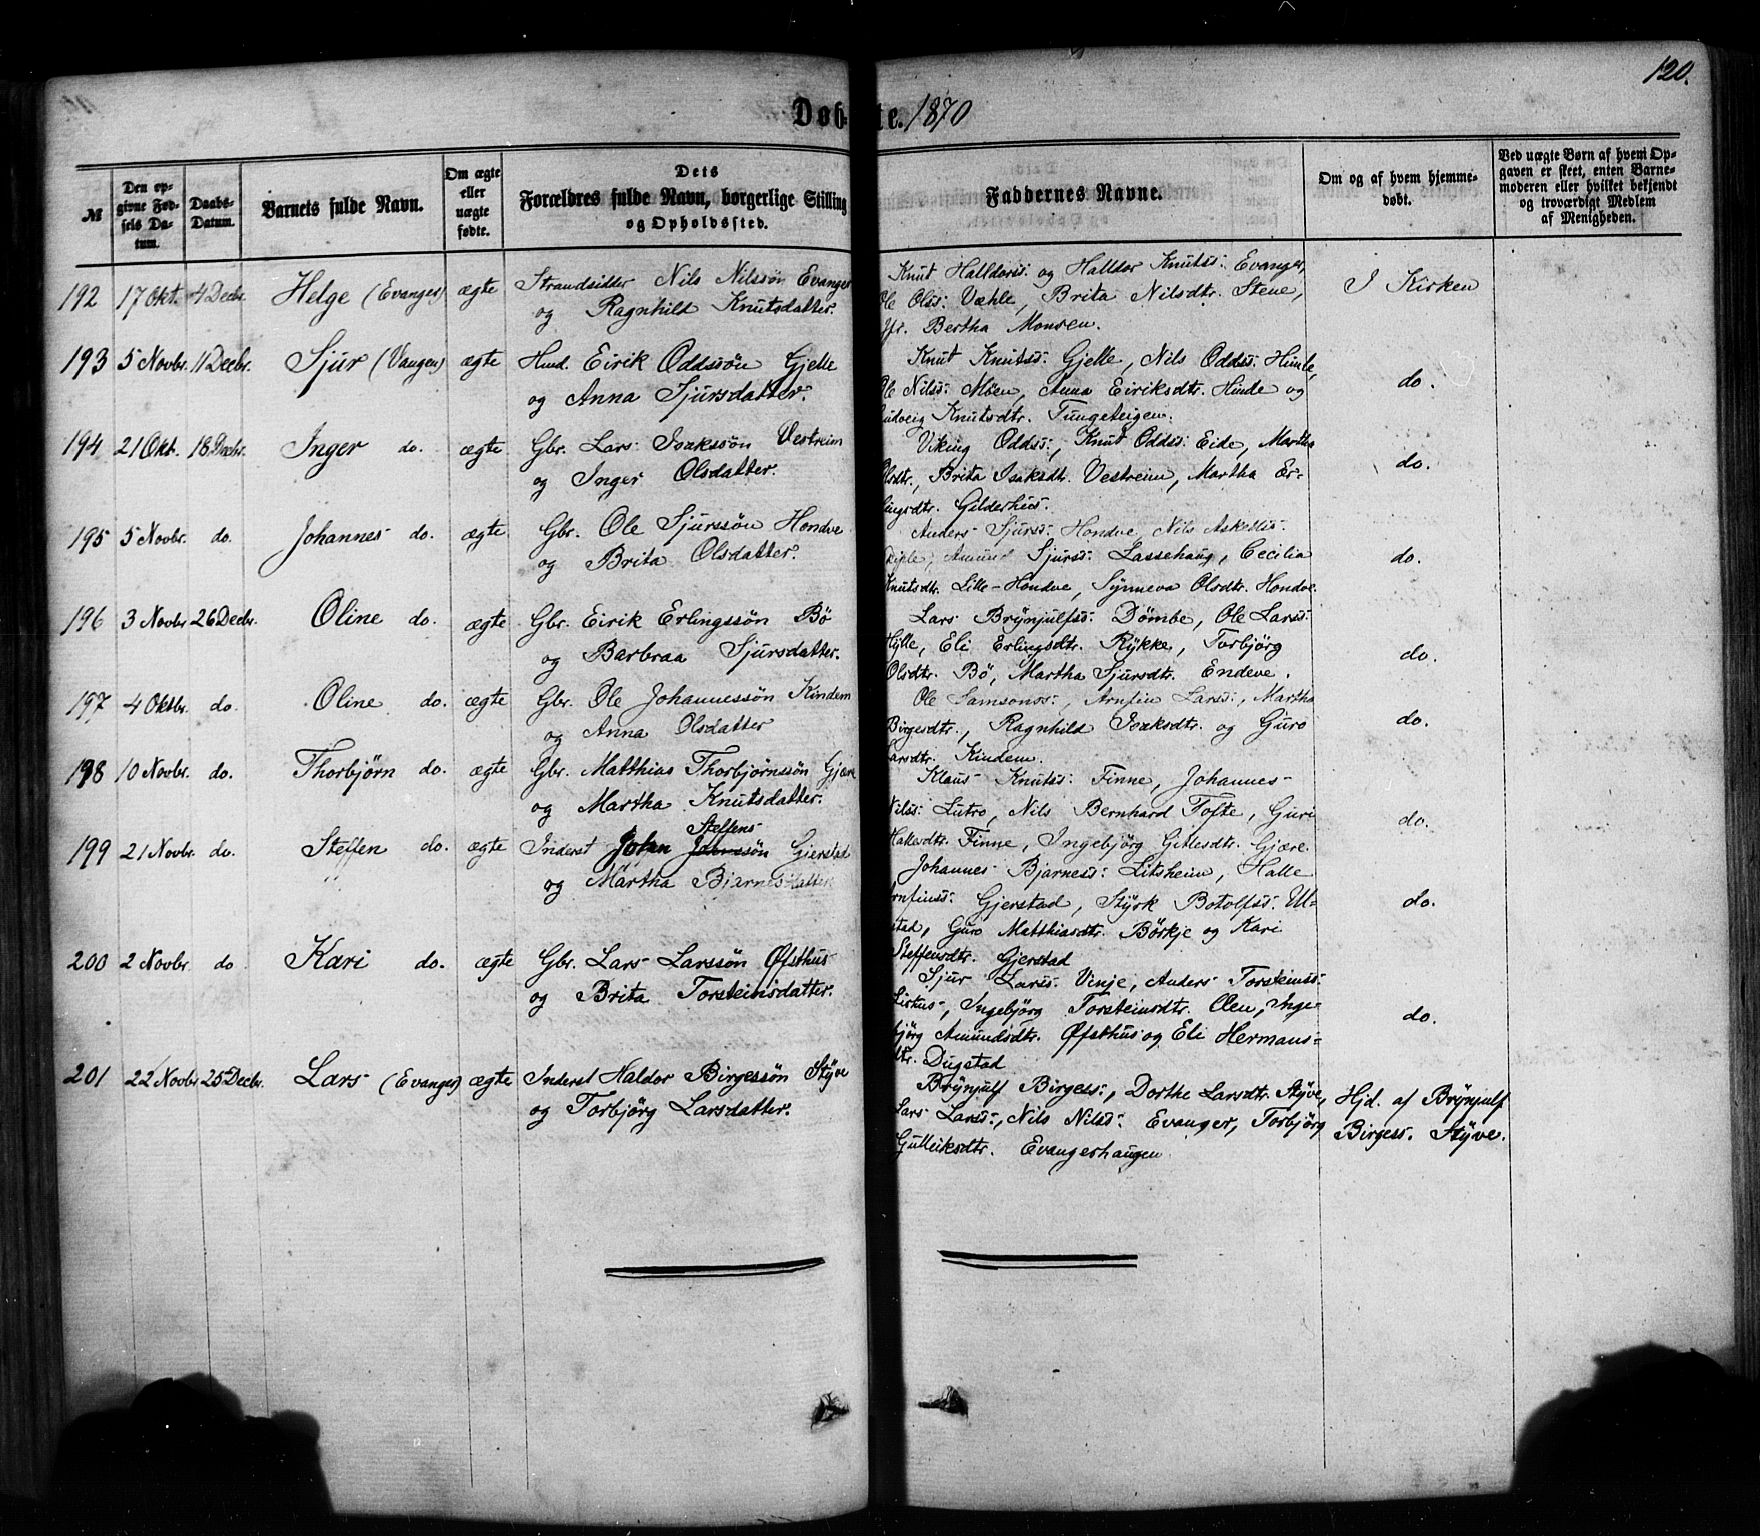 120.
Døb- te. 1870
№
Den opgivne Fødsels Datum.
Daabs-Datum.
Barnets fulde Navn.
Om ægte eller uægte fødte.
Dets Forældres fulde Navn, borgerlige Stilling og Opholdssted.
Faddernes Navne.
Om og af hvem hjemmedøbt.
Ved uægte Børn af hvem Opgaven er skeet, enten Barnemoderen eller hvilket bekjendt og troværdigt Medlem af Menigheden.
192 17 Okt. 4 Decbr. Helge (Evanger) ægte Strandsidder Nils Nilssøn Evanger
og Ragnhild Knutsdatter.
Knut Halldorss: og Halldor Knutss: Evanger,
Ole Olss: Væhle, Brita Nilsdtr. Stene,
Jfr. Bertha Monsen.
I Kirken
193 5 Novbr. 11 Decbr. Sjur (Vangen) ægte Hmd. Eirik Oddssøn Gjelle
og Anna Sjursdatter.
Knut Knutss: Gjelle, Nils Oddss: Himle,
Ole Nilss: Møen, Anna Eiriksdtr. Himle og
Ludveig Knutsdtr. Tungeteigen.
do.
194 21 Okt. 18 Decbr. Inger do. ægte Gbr. Lars Isakssøn Vestreim
og Inger Olsdatter.
Viking Oddss:, Knut Oddss: Eide, Martha
Olsdtr., Brita Isaksdt. Vestreim, Martha Er-
lingsdtr. Gilderhus.
do.
195 5 Novbr. do. Johannes do. ægte Gbr. Ole Sjurssøn Hondve
og Brita Olsdatter.
Anders Sjurss: Hondve, Nils Askellss:
Amund Sjurss: Lassehaug, Cecilia
Knutsdtr. Lille-Hondve, Synneva Olsdtr. Hondve.
do.
196 3 Novbr. 26 Decbr. Oline do. ægte Gbr. Eirik Erlingssøn Bø
og Barbraa Sjursdatter.
Lars Brynjulfss: Dømbe, Ole Larss:
Hylle, Eli Erlingsdtr. Rykke, Torbjørg
Olsdtr. Bø, Martha Sjursdtr. Endeve.
do.
197 4 Oktbr. do. Oline do. ægte Gbr. Ole Johannessøn Kindem
og Anna Olsdatter
Ole Samsonss:, Arnfin Larss:, Martha
Birgesdtr., Ragnhild Isaksdtr. og Guro
Larsdtr. Kindem.
do.
198 10 Novbr. do. Thorbjørn do. ægte Gbr. Matthias Thorbjørnssøn Gjære
og Martha Knutsdatter.
Klaus Knutss: Finne, Johannes
Nilss: Lutro, Nils Bernhard Tofte, Guri
Hakesdtr. Finne, Ingebjørg Gitlesdtr. Gjære.
do.
199 21 Novbr. do. Steffen do. ægte Inderst John Steffens- Johnssøn Gjerstad
og Martha Bjarnesdatter
Johannes Bjarness: Litsheim, Halle
Arnfinss: Gjerstad, Styrk Botolfss: Ul-
stad, Guro Matthiasdtr. Børkje og Kari
Steffensdtr. Gjerstad
do.
200 2 Novbr. do Kari do. ægte Gbr. Lars Larssøn Øfsthus
og Brita Torsteinsdatter.
Sjur Larss: Vinje, Anders Torsteinss:
Lirhus, Ingebjørg Torsteinsdtr. Olen, Inge-
bjørg Amundsdtr. Øfsthus og Eli Hermans-
dtr. Dugstad
do.
201 22 Novbr. 25 Decbr. Lars (Evanger) ægte Inderst Haldor Birgessøn Styve
og Torbjørg Larsdatter.
Brynjulf Birgess:, Dorthe Larsdtr. Styve,
Lars Larss:, Nils Nilss: Evanger, Torbjørg
Gulleiksdtr. Evangerhaugen
Hjd. af Brynjulf
Birgess. Styve.